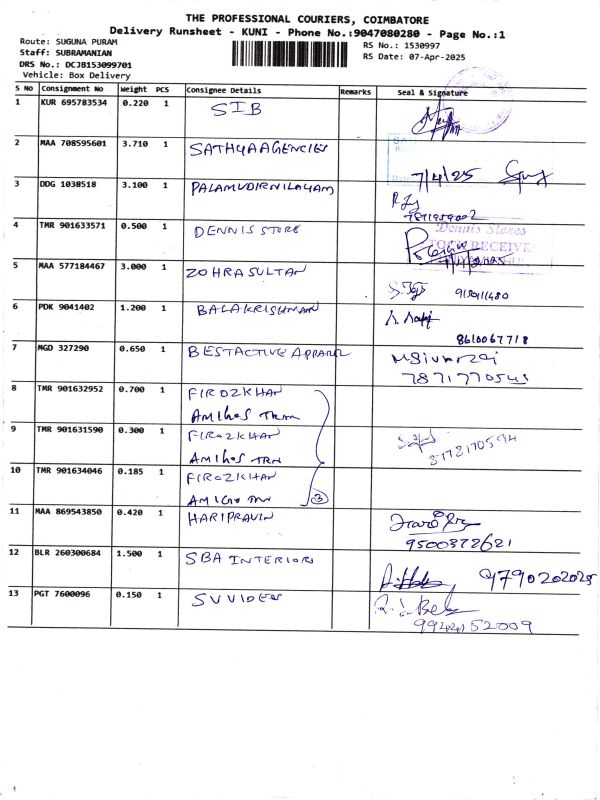 THE PROFESSIONAL COURIERS, COIMBATORE
Delivery Runsheet - KUNI - Phone No.:9047080280 - Page No.:1
Route: SUGUNA PURAM
Staff: SUBRAMANIAN
DRS No.: DCJB153099701
Vehicle: Box Delivery
RS No.: 1530997
RS Date: 07-Apr-2025
S No Consignment No Weight PCS Consignee Details Remarks Seal & Signature
1 KUR 695783534 0.220 1 SIB
2 MAA 708595601 3.710 1 SATHYAAGENCIES 7/4/25
3 DDG 1038518 3.100 1 PALAMUDIRNILAYAM
4 TMR 901633571 0.500 1 DENNIS STORE Dennis Stores
5 MAA 577184467 3.000 1 ZOHRASULTAN
6 PDK 9041402 1.200 1 BALAKRISHNAN 8610067718
7 MGD 327290 0.650 1 BESTACTIVE APPRAL
7871770545
8 TMR 901632952 0.700 1 FIROZKHAN
9 TMR 901631590 0.300 1 FIROZKHAN
10 TMR 901634046 0.185 1 FIROZKHAN
3
11 MAA 869543850 0.420 1 HARIPRAVIN
9500372621
12 BLR 260300684 1.500 1 SBA INTERIORS 9790202025
13 PGT 7600096 0.150 1 SVVIDEN